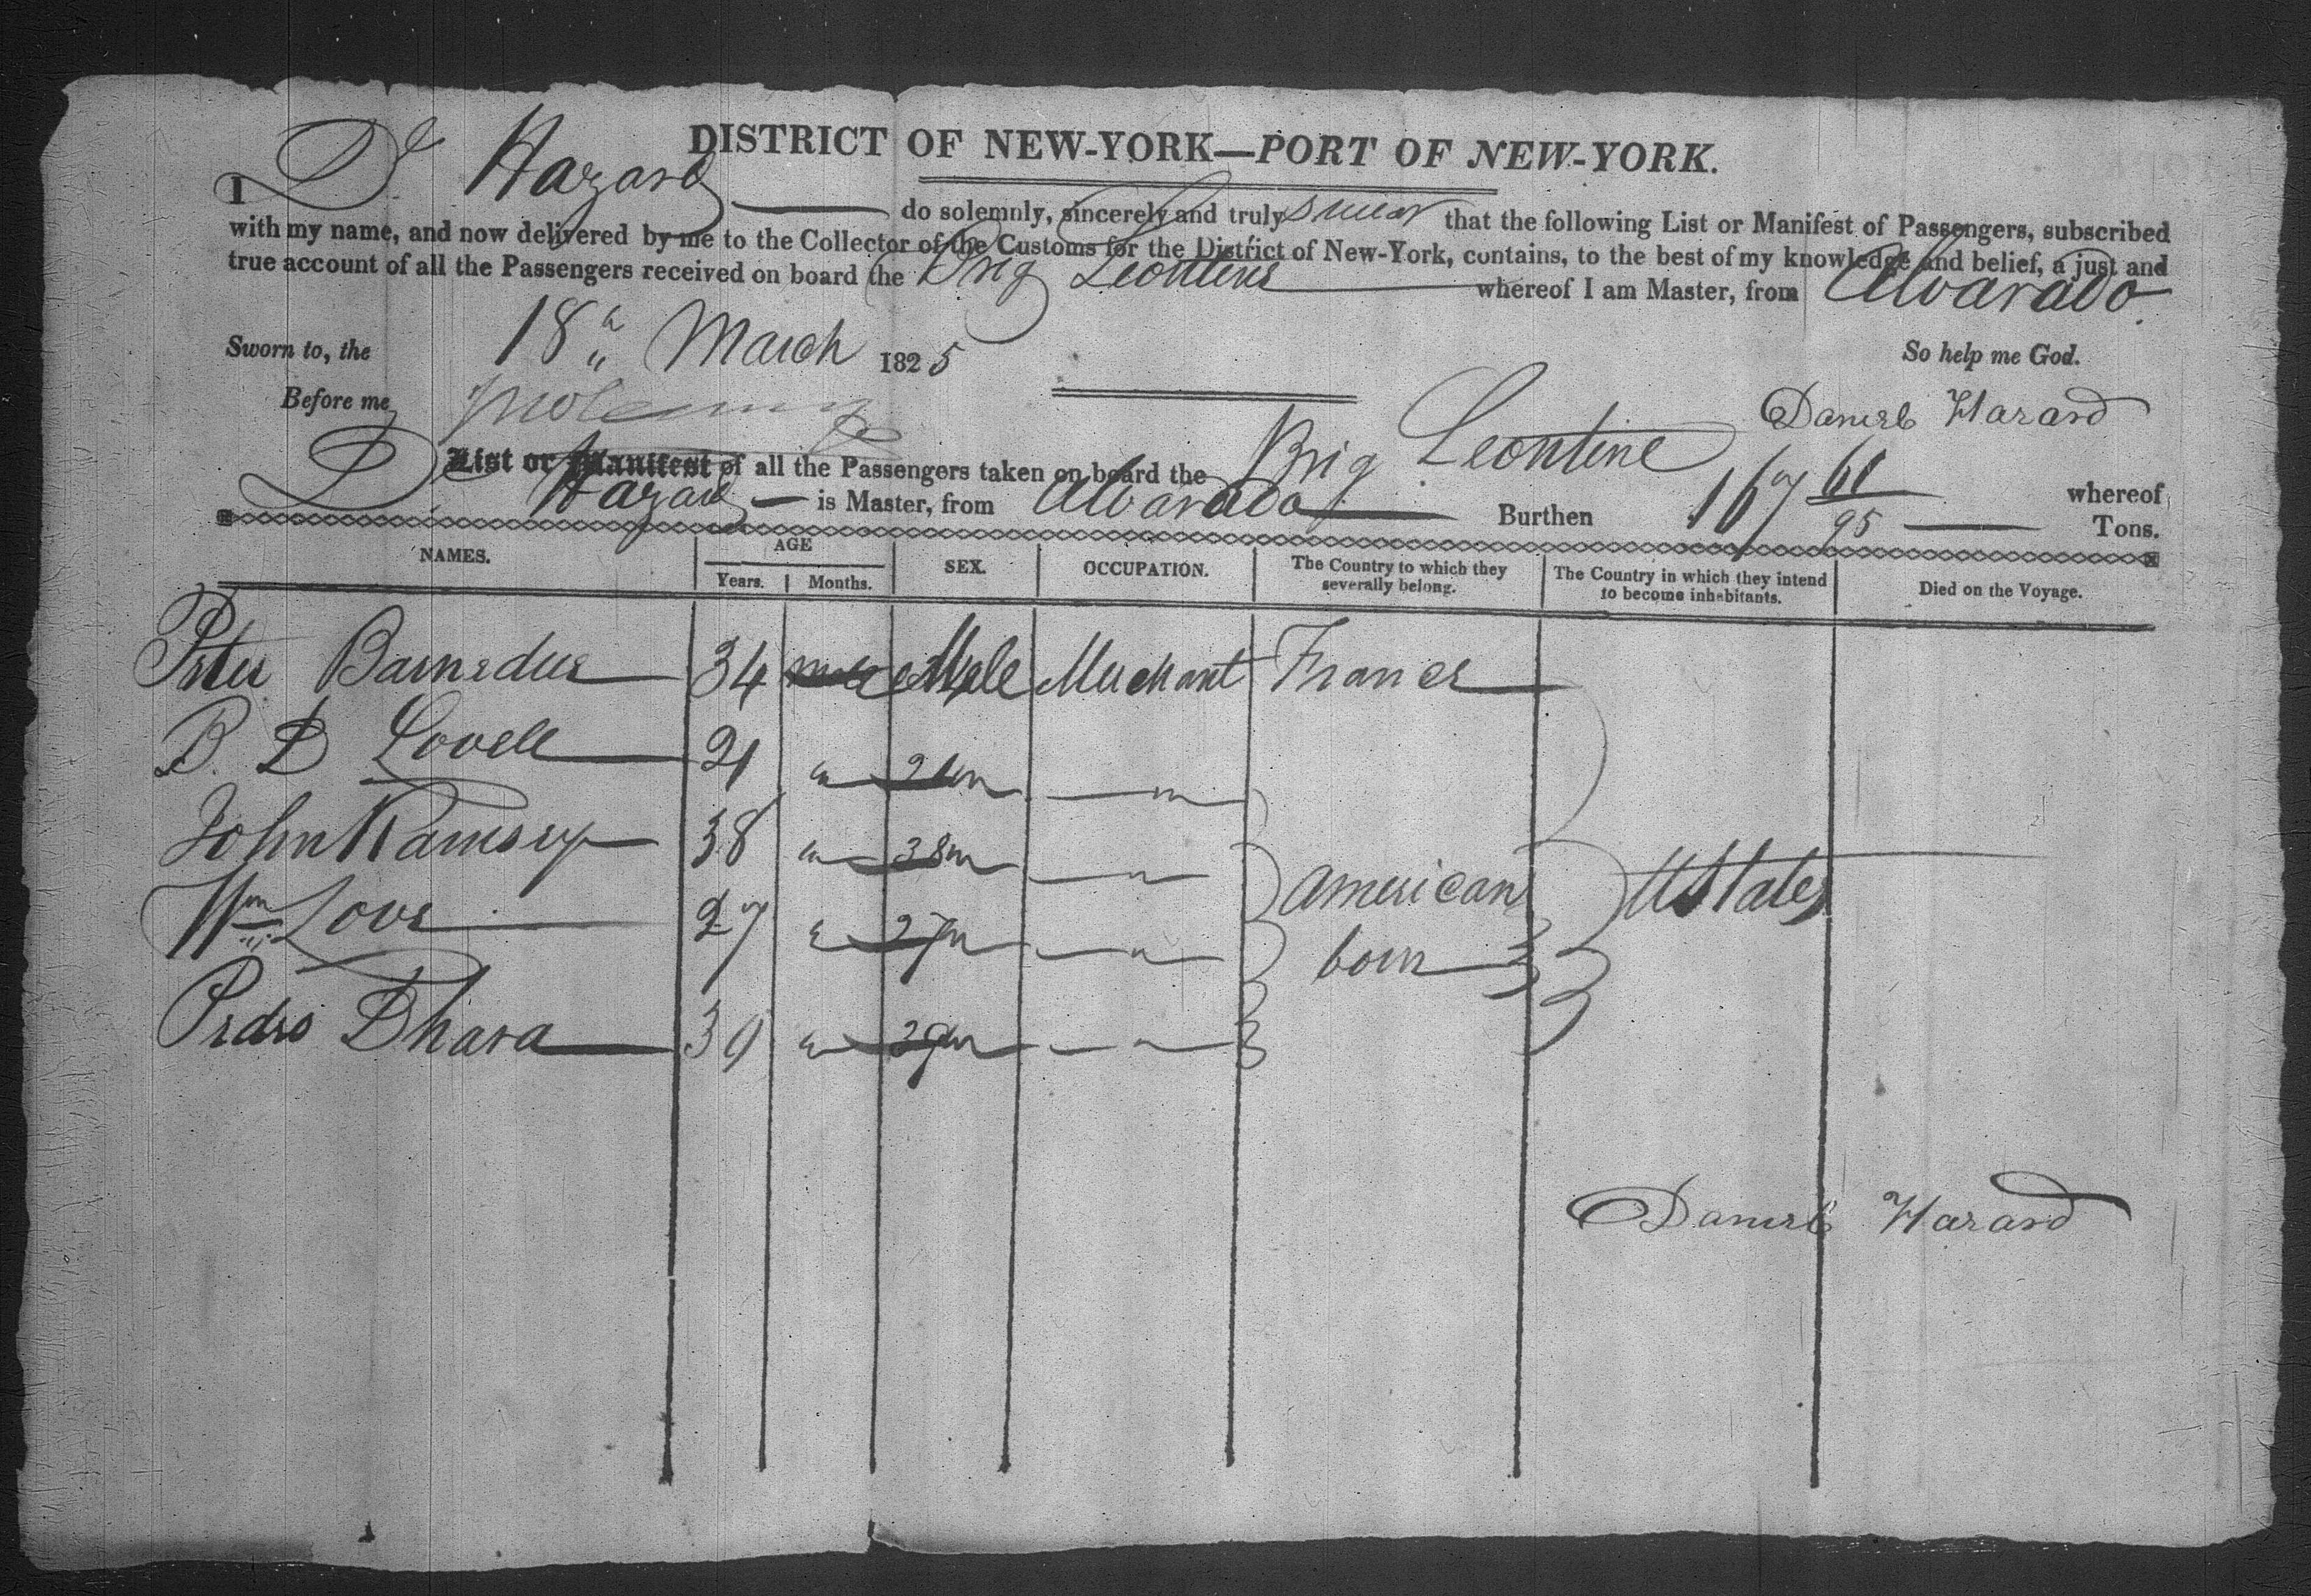 DISTRICT OF NEW-YORK—PORT OF NEW-YORK.
I D. Hazard do solemnly, sincerely and truly swear that the following List or Manifest of Passengers, subscribed
with my name, and now delivered by me to the Collector of the Customs for the District of New-York, contains, to the best of my knowledge and belief, a just and
true account of all the Passengers received on board the Brig Leontine whereof I am Master, from Alvarado.
Sworn to, the 18th March 1825 So help me God.
Before me, Daniel Hazard
List or Manifest of all the Passengers taken on board the Brig Leontine whereof
D. Hazard is Master, from Alvarado Burthen 167 61/95 Tons.
NAMES. AGE Years. Months. SEX. OCCUPATION. The Country to which they severally belong. The Country in which they intend to become inhabitants. Died on the Voyage.
Peter 34 Male Merchant France
B. D Lovell 21 " 21 " "
John Ramsey 38 " 38 " "
American U States
Wm Love 27 " 27 " "
born
Pedro 39 " 39 " "
Daniel Hazard